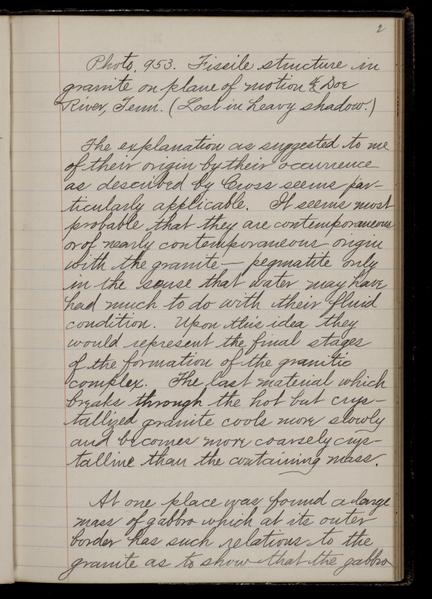 2
Photo. 953. Fissile structure in
granite on plane of motion of Doe
River, Tenn. (Lost in heavy shadow.)
The explanation as suggested to me
of their origin by their occurrence
as described by Cross seems par-
ticularly applicable. It seems most
probable that they are contemporaneous
or of nearly contemporaneous origin
with the granite — pegmatite only
in the sense that water may have
had much to do with their fluid
condition. Upon this idea they
would represent the final stages
of the formation of the granitic
complex. The last material which
breaks through the hot but crys-
tallized granite cools more slowly
and becomes more coarsely crys-
talline than the containing mass.
At one place was found a large
mass of gabbro which at its outer
border has such relations to the
granite as to show that the gabbro